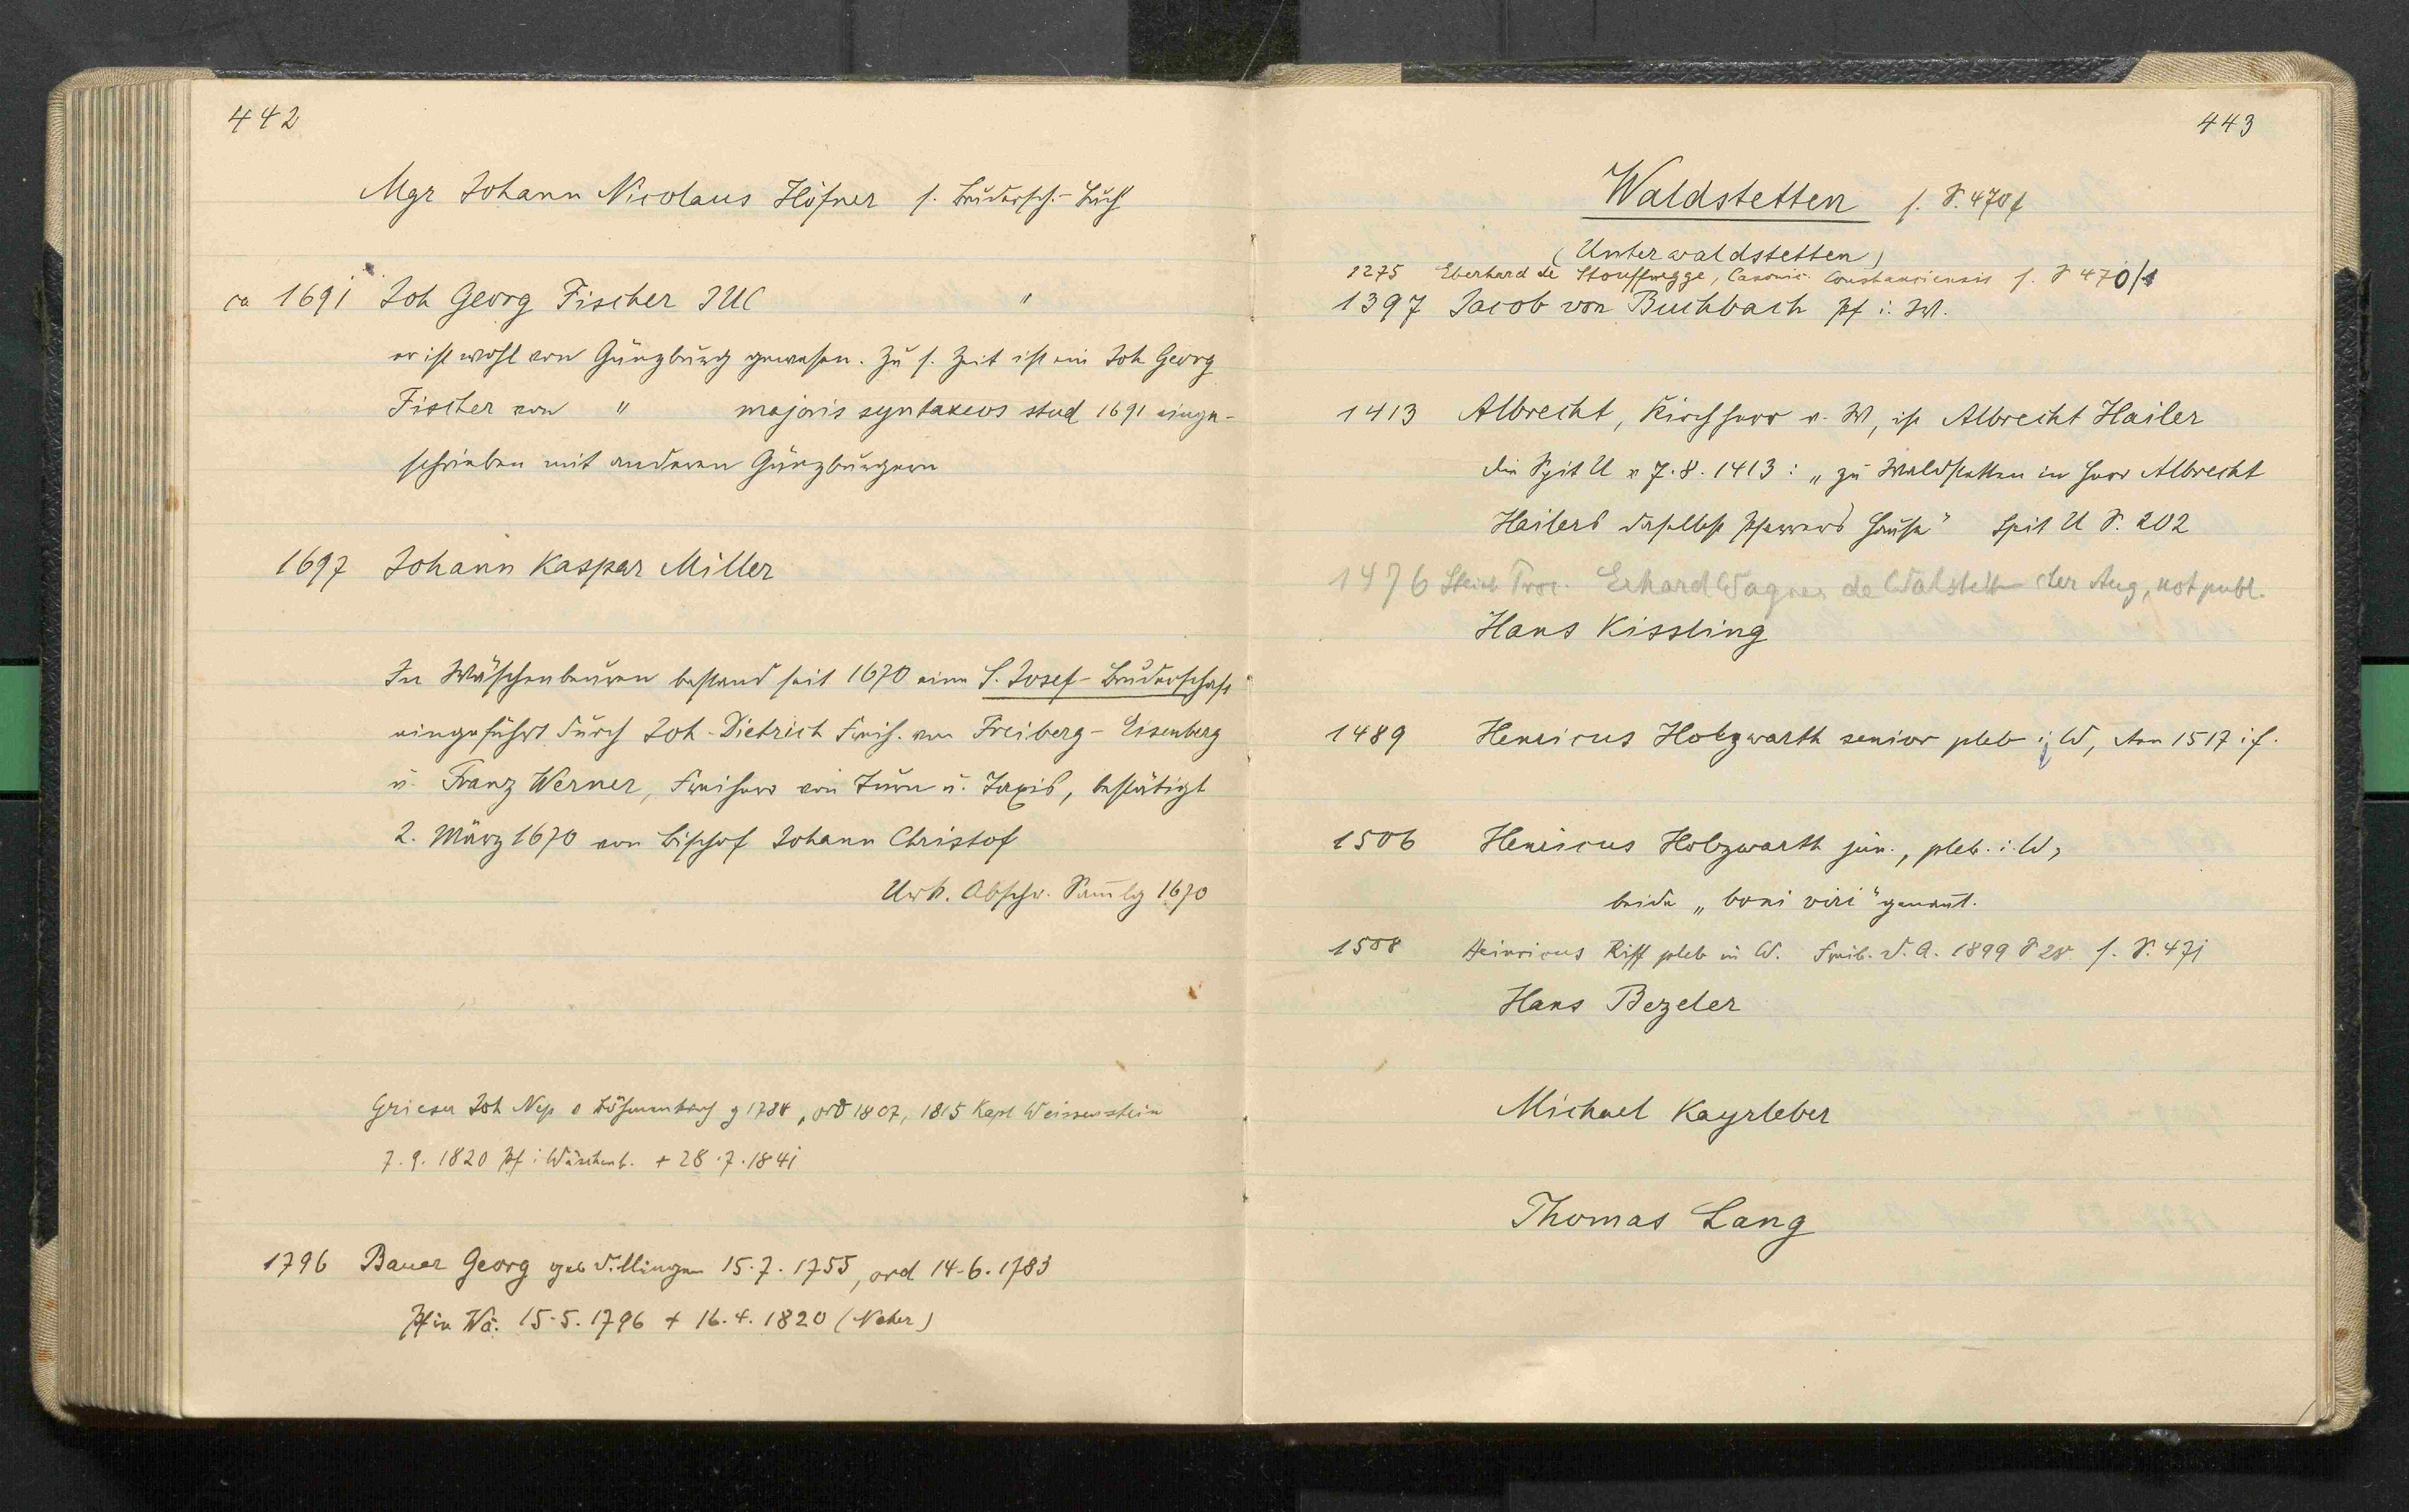 442
Mgr Johann Nicolaus Höfner s. Brudersch.-Buch
ca 1691 Joh Georg Fischer JUC "
er ist wohl von Günzburg gewesen. Zu s. Zeit ist ein Joh Georg
Fischer von " majoris syntaxeos stud 1691 einge-
schrieben mit anderen Günzburgern
1697 Johann Kaspar Miller
In Wäschenbeuren bestand seit 1670 eine S. Josef-Bruderschaft
eingeführt durch Joh-Dietrich Freih. von Freiberg-Eisenberg
u. Franz Werner, Freiherr von Turn u. Taxis, bestätigt
2. März 1670 von Bischof Johann Christof
Urk. Abschr. Samlg 1670
Grieser Joh Nep v Böhmenkirch g 1784, ord 1807, 1815 Kapl Weissenstein
7.9.1820 Pf i Wäschenb. + 28.7.1841
1796 Bauer Georg geb Villingen 15.7.1755, ord 14.6.1783
Pf in Wä. 15.5.1796 + 16.4.1820 (Neher)
443
Waldstetten s. S. 470f
(Unterwaldstetten)
1275 Eberhard de Stouffnegge, Canonic. Constanciensis s. S 470/1
1397 Jacob von Buchbach Pf i. W.
1413 Albrecht, Kirchherr v. W, ist Albrecht Hailer
die Spit U v 7.8.1413: „zu Waldstetten in Herr Albrecht
Hailers daselbst Pfarrers Hause" Spit U S. 202
1476 Proc. Erhard Wagner de Walstetten cler Aug, not publ.
Hans Kissling
1489 Henricus Holzwarth senior pleb i W, Ann 1517 i f.
1506 Henricus Holzwarth jun., pleb. i. W,
beide „boni viri" genant.
1508 Heinricus Riff pleb in W. Freib. D. A. 1899 S 28 s. S. 471
Hans Bezeler
Michael Kayrleber
Thomas Lang